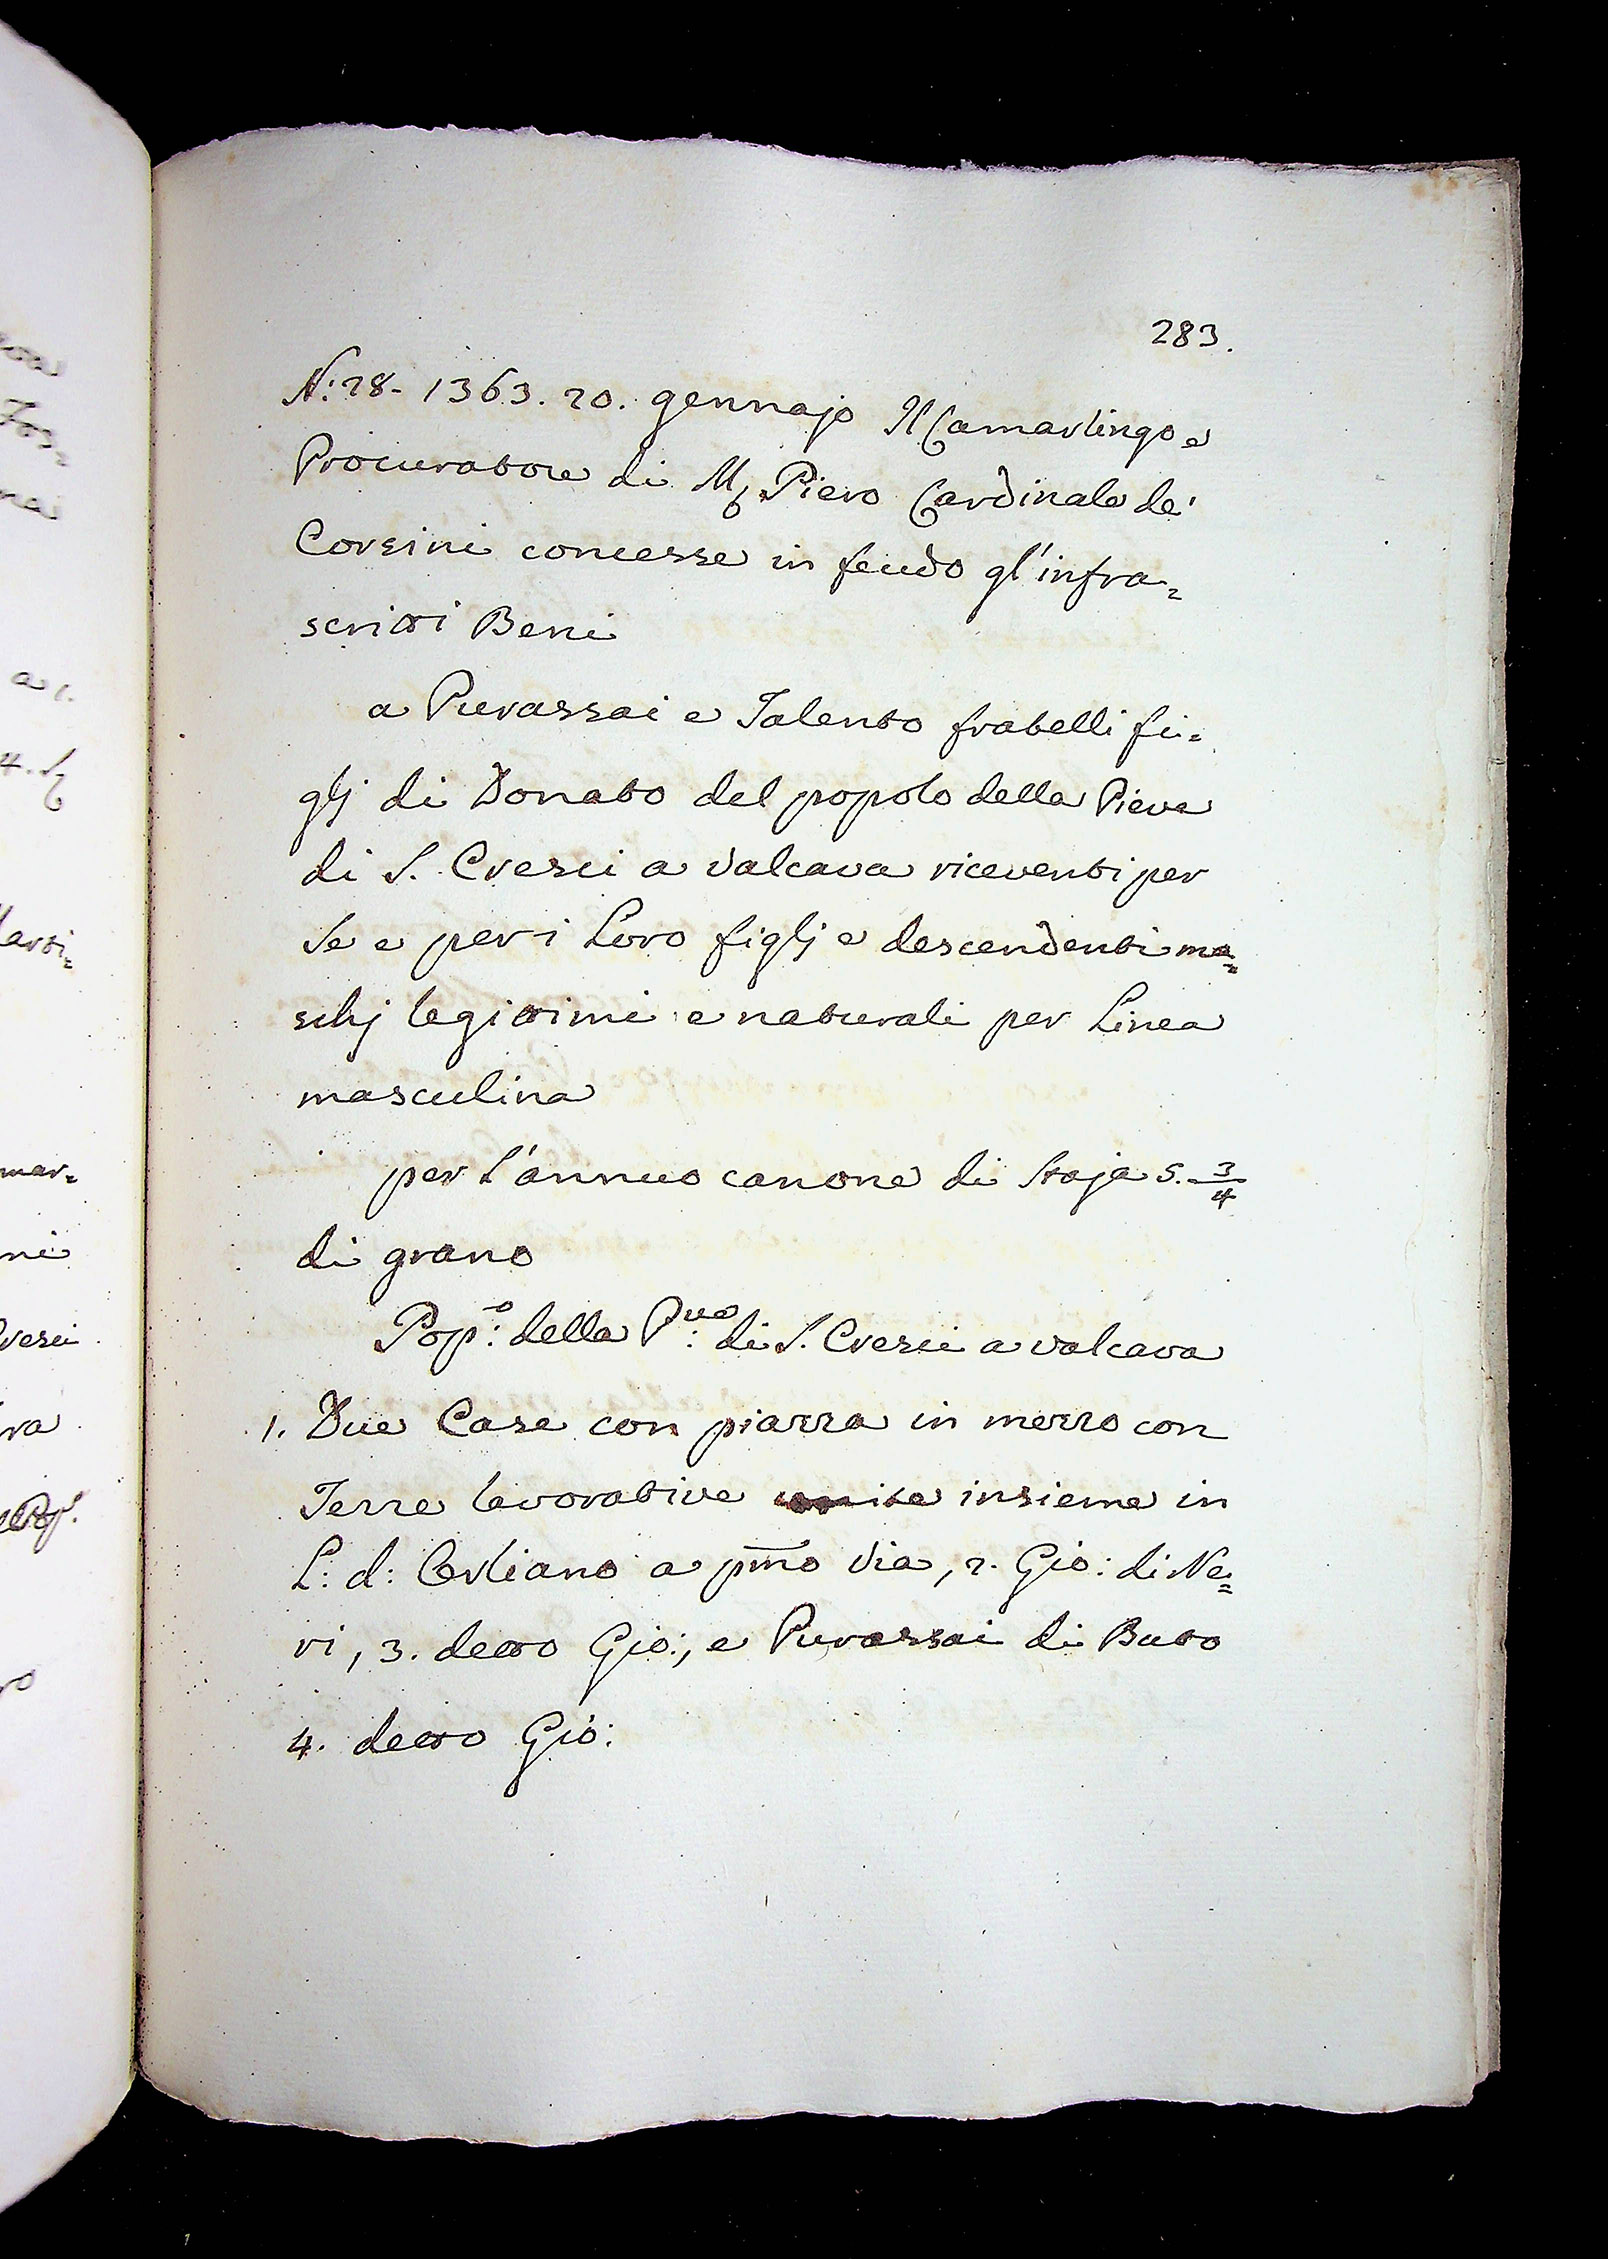 283.
N: 28 - 1363. 20. gennajo Il Camarlingo e
Procuratore di M. Piero Cardinale de'
Corsini concesse in feudo gl'infra=
scritti Beni
a Purassai e Talento fratelli fi=
glj di Donato del popolo della Pieve
di S. Cresci a Valcava riceventi per
Se e per i Loro figlj e descendenti ma=
schj legittimi e naturali per Linea
masculina
per l'annuo canone di Staja 5. 3/4
di grano
Pop:o della P:ve di S. Cresci a valcava
1. Due Case con piazza in mezzo con
Terre lavorative unite insieme in
L: d: a pmo Via, 2. Gio: di Ne=
ri, 3. detto Gio:, e Purassai di Buto
4. detto Gio:
ma
ne
a 1.
4.
Marti=
mar=
ni
Cresci
ro